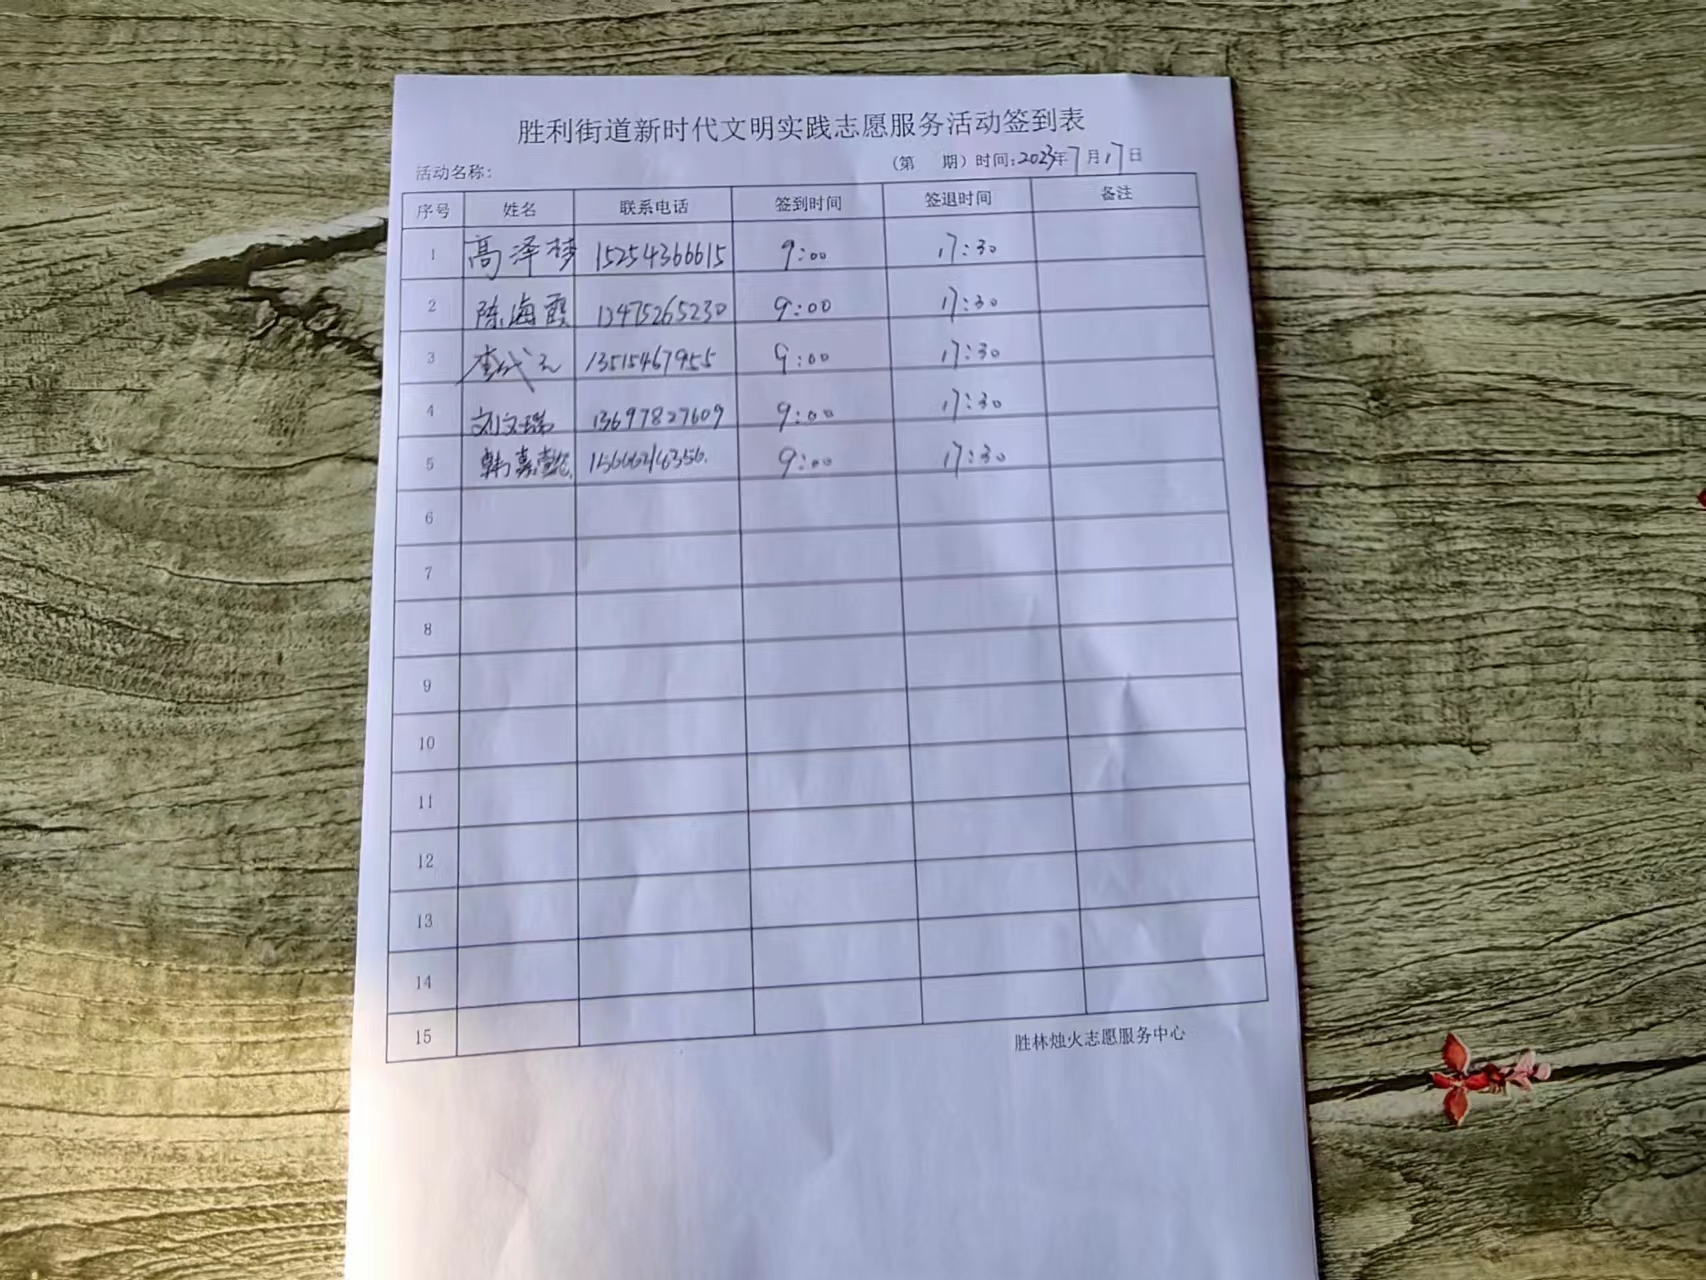 胜利街道新时代文明实践志愿服务活动签到表
活动名称: (第 期) 时间:2023年7月17日
序号 姓名 联系电话 签到时间 签退时间 备注
1 高泽梦 15254366615 9:00 17:30
2 陈海霞 13475265230 9:00 17:30
3 13515467955 9:00 17:30
4 刘文瑞 13697827609 9:00 17:30
5 韩嘉懿 9:00 17:30
6
7
8
9
10
11
12
13
14
15
胜林烛火志愿服务中心